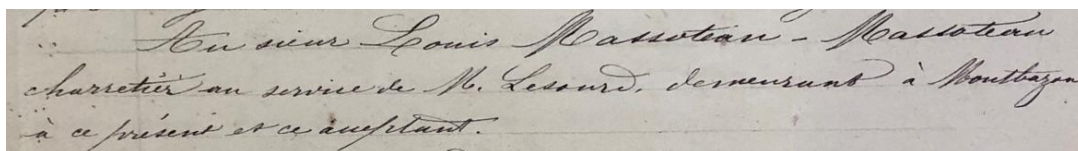 Au sieur Louis Massoteau - Massoteau
charretier au service de M. Lesourd, demeurant à Montbazon
à ce présent et ce acceptant.